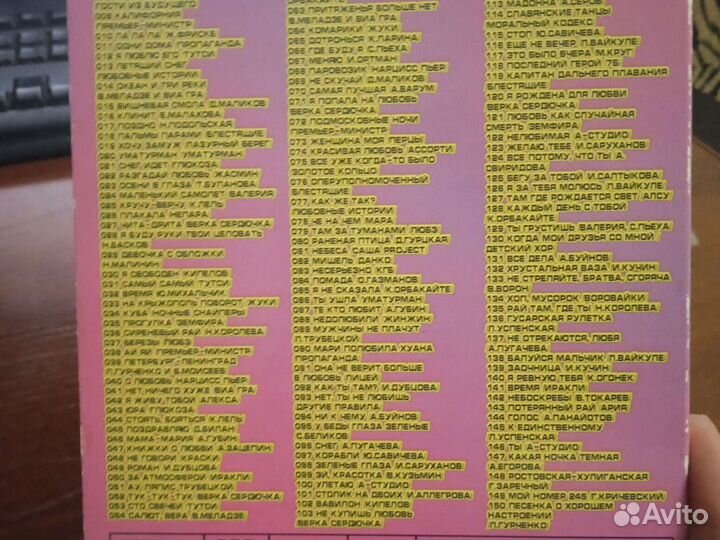 ГОСТИ ИЗ БУДУЩЕГО
009 КАЛИФОРНИЯ
ПРЕМЬЕР-МИНИСТР
010 ЛА ЛА ЛА Ж.ФРИСКЕ
011 ОДНИ ДОМА ПРОПАГАНДА
012 Я ЛЮБЛЮ ЕГО ТУТСИ
013 ЛЕТЯЩИЙ СНЕГ
ЛЮБОВНЫЕ ИСТОРИИ
014 ОКЕАН И ТРИ РЕКИ
В.МЕЛАДЗЕ И ВИА ГРА
015 ВИШНЕВАЯ СМОЛА Д.МАЛИКОВ
016 КЛИНИТ Е.МАЛАХОВА
017 ПОЗДНО Н.ПОДОЛЬСКАЯ
018 ПАЛЬМЫ ПАРАМИ БЛЕСТЯЩИЕ
019 ХОЧУ ЗАМУЖ ЛАЗУРНЫЙ БЕРЕГ
020 УМАТУРМАН УМАТУРМАН
021 СНЕГ ИДЕТ ГЛЮКОZA
022 РАЗГАДАЙ ЛЮБОВЬ ЖАСМИН
023 ОСЕНИ В ГЛАЗА Т.БУЛАНОВА
024 МАЛЕНЬКИЙ САМОЛЕТ ВАЛЕРИЯ
025 КРУЧУ-ВЕРЧУ К.ЛЕЛЬ
026 ПЛАКАЛА НЕПАРА
027 ЧИТА-ДРИТА ВЕРКА СЕРДЮЧКА
028 Я БУДУ РУКИ ТВОИ ЦЕЛОВАТЬ
Н.БАСКОВ
029 ДЕВОЧКА С ОБЛОЖКИ
Н.МАЛИНИН
030 Я СВОБОДЕН КИПЕЛОВ
031 САМЫЙ САМЫЙ ТУТСИ
032 ВРЕМЯ Ю.МИХАЛЬЧИК
033 НА КРЫЖОПОЛЬ ПОВОРОТ ЖУКИ
034 КУБА НОЧНЫЕ СНАЙПЕРЫ
035 ПРОГУЛКА ЗЕМФИРА
036 СИРЕНЕВЫЙ РАЙ Н.КОРОЛЕВА
037 БЕРЕЗЫ ЛЮБЭ
038 АЙ ЯЙ ПРЕМЬЕР-МИНИСТР
039 ПЕТЕРБУРГ-ЛЕНИНГРАД
Л.ГУРЧЕНКО И Б.МОИСЕЕВ
040 О ЛЮБОВЬ НАРЦИСС ПЬЕР
041 НЕТ, НИЧЕГО ХУЖЕ ВИА ГРА
042 Я ЖИВУ ТОБОЙ АЛЕКСА
043 ЮРА ГЛЮКОZA
044 СТОЯТЬ, БОЯТЬСЯ К.ЛЕЛЬ
045 ПОЗДРАВЛЯЮ Д.БИЛАН
046 МАМА-МАРИЯ А.ГУБИН
047 КНИЖКИ О ЛЮБВИ А.ЗАЦЕПИН
048 НЕ ГОВОРИ КРАСКИ
049 РОМАН И.ДУБЦОВА
050 ЗА АТМОСФЕРОЙ ИРАКЛИ
051 АУ ЛЯПИС ТРУБЕЦКОЙ
052 ТУК-ТУК-ТУК ВЕРКА СЕРДЮЧКА
053 СТО СВЕЧЕЙ ТУТСИ
054 САЛЮТ, ВЕРА В.МЕЛАДЗЕ
063 ПРИТЯЖЕНЬЯ БОЛЬШЕ НЕТ
В.МЕЛАДЗЕ И ВИА ГРА
064 КОМАРИКИ ЖУКИ
065 ДОТРОНЬСЯ К.ЛАРИНА
066 ГДЕ БУДУ Я С.ПЬЕХА
067 МЕНЯЮ И.ОРТМАН
068 ПАРОВОЗИК НАРЦИСС ПЬЕР
069 НЕ СКУЧАЙ Д.МАЛИКОВ
070 САМАЯ ЛУЧШАЯ А.ВАРУМ
071 Я ПОПАЛА НА ЛЮБОВЬ
ВЕРКА СЕРДЮЧКА
072 ПОДМОСКОВНЫЕ НОЧИ
ПРЕМЬЕР-МИНИСТР
073 ЖЕНЩИНА МОЯ ПЕРЦЫ
074 КРАСИВАЯ ЛЮБОВЬ АССОРТИ
075 ВСЕ УЖЕ КОГДА-ТО БЫЛО
ЗОЛОТОЕ КОЛЬЦО
076 ОПЕРУПОЛНОМОЧЕННЫЙ
БЛЕСТЯЩИЕ
077 КАК ЖЕ ТАК?
ЛЮБОВНЫЕ ИСТОРИИ
078 ЧЕ НА ЧЕМ МАРА
079 ТАМ ЗА ТУМАНАМИ ЛЮБЭ
080 РАНЕНАЯ ПТИЦА Д.ГУРЦКАЯ
081 НЕБЕСА САША PROJECT
082 МИШЕЛЬ ДАНКО
083 НЕСЕРЬЕЗНО КГБ
084 ПОМАДА О.ГАЗМАНОВ
085 Я НЕ СКАЗАЛА К.ОРБАКАЙТЕ
086 ТЫ УШЛА УМАТУРМАН
087 ТЕ КТО ЛЮБИТ А.ГУБИН
088 НЕДОЛЮБИЛИ ЖИНЖИН
089 МУЖЧИНЫ НЕ ПЛАЧУТ
Л.ТРУБЕЦКОЙ
090 МАРИ ПОЛЮБИЛА ХУАНА
ПРОПАГАНДА
091 ОНА НЕ ВЕРИТ БОЛЬШЕ
В ЛЮБОВЬ ЛИЦЕЙ
092 КАК ТЫ ТАМ? И.ДУБЦОВА
093 НЕТ, ТЫ НЕ ЛЮБИШЬ
ДРУГИЕ ПРАВИЛА
094 НИ К ЧЕМУ А.БУЙНОВ
095 У БЕДЫ ГЛАЗА ЗЕЛЕНЫЕ
С.БЕЛИКОВ
096 СНЕГ А.ПУГАЧЕВА
097 КОРАБЛИ Ю.САВИЧЕВА
098 ЗЕЛЕНЫЕ ГЛАЗА И.САРУХАНОВ
099 ЭЙ, КРАСОТКА В.КУЗЬМИН
100 УЛЕТАЮ А-СТУДИО
101 СТОЛИК НА ДВОИХ И.АЛЛЕГРОВА
102 ВАВИЛОН КИПЕЛОВ
103 НЕ КУПИШЬ ЛЮБОВЬ
ВЕРКА СЕРДЮЧКА
113 МАДОННА А.СЕРОВ
114 СЛАВЯНСКИЕ ТАНЦЫ
МОРАЛЬНЫЙ КОДЕКС
115 СТОП Ю.САВИЧЕВА
116 ЕЩЕ НЕ ВЕЧЕР Л.ВАЙКУЛЕ
117 ЭТО БЫЛО ВЧЕРА М.КРУГ
118 ПОСЛЕДНИЙ ГЕРОЙ 7Б
119 КАПИТАН ДАЛЬНЕГО ПЛАВАНИЯ
БЛЕСТЯЩИЕ
120 Я РОЖДЕНА ДЛЯ ЛЮБВИ
ВЕРКА СЕРДЮЧКА
121 ЛЮБОВЬ КАК СЛУЧАЙНАЯ
СМЕРТЬ ЗЕМФИРА
122 НЕЛЮБИМАЯ А-СТУДИО
123 ЖЕЛАЮ ТЕБЕ И.САРУХАНОВ
124 ВСЕ ПОТОМУ, ЧТО ТЫ А.
СВИРИДОВА
125 БЕГУ ЗА ТОБОЙ И.САЛТЫКОВА
126 Я ЗА ТЕБЯ МОЛЮСЬ Л.ВАЙКУЛЕ
127 ТАМ ГДЕ РОЖДАЕТСЯ СВЕТ АЛСУ
128 КАЖДЫЙ ДЕНЬ С ТОБОЙ
К.ОРБАКАЙТЕ
129 ТЫ ГРУСТИШЬ ВАЛЕРИЯ, С.ПЬЕХА
130 КОГДА МОИ ДРУЗЬЯ СО МНОЙ
ДЕТСКИЙ ХОР
131 ВСЕ ДЕЛА А.БУЙНОВ
132 ХРУСТАЛЬНАЯ ВАЗА И.КУЧИН
133 НЕ СТРЕЛЯЙТЕ, БРАТВА, СГОРЯЧА
В.ВОРОН
134 ХОП, МУСОРОК ВОРОВАЙКИ
135 РАЙ ТАМ, ГДЕ ТЫ Н.КОРОЛЕВА
136 ГУСАРСКАЯ РУЛЕТКА
Л.УСПЕНСКАЯ
137 НЕ ОТРЕКАЮТСЯ, ЛЮБЯ
А.ПУГАЧЕВА
138 БАЛУЙСЯ МАЛЬЧИК Л.ВАЙКУЛЕ
139 ЗАОЧНИЦА И.КУЧИН
140 Я РЕВНУЮ ТЕБЯ К.ОГОНЕК
141 ВРЕМЯ ИРАКЛИ
142 НЕБОСКРЕБЫ В.ТОКАРЕВ
143 ПОТЕРЯННЫЙ РАЙ АРИЯ
144 ГОЛОС А.ПАНАЙОТОВ
145 К ЕДИНСТВЕННОМУ
Л.УСПЕНСКАЯ
146 ТЫ А-СТУДИО
147 КАКАЯ НОЧКА ТЕМНАЯ
А.ЕГОРОВА
148 РОСТОВСКАЯ-ХУЛИГАНСКАЯ
Г.ЗАРЕЧНЫЙ
149 МОЙ НОМЕР 245 Г.КРИЧЕВСКИЙ
150 ПЕСЕНКА О ХОРОШЕМ
НАСТРОЕНИИ
Л.ГУРЧЕНКО
Avito